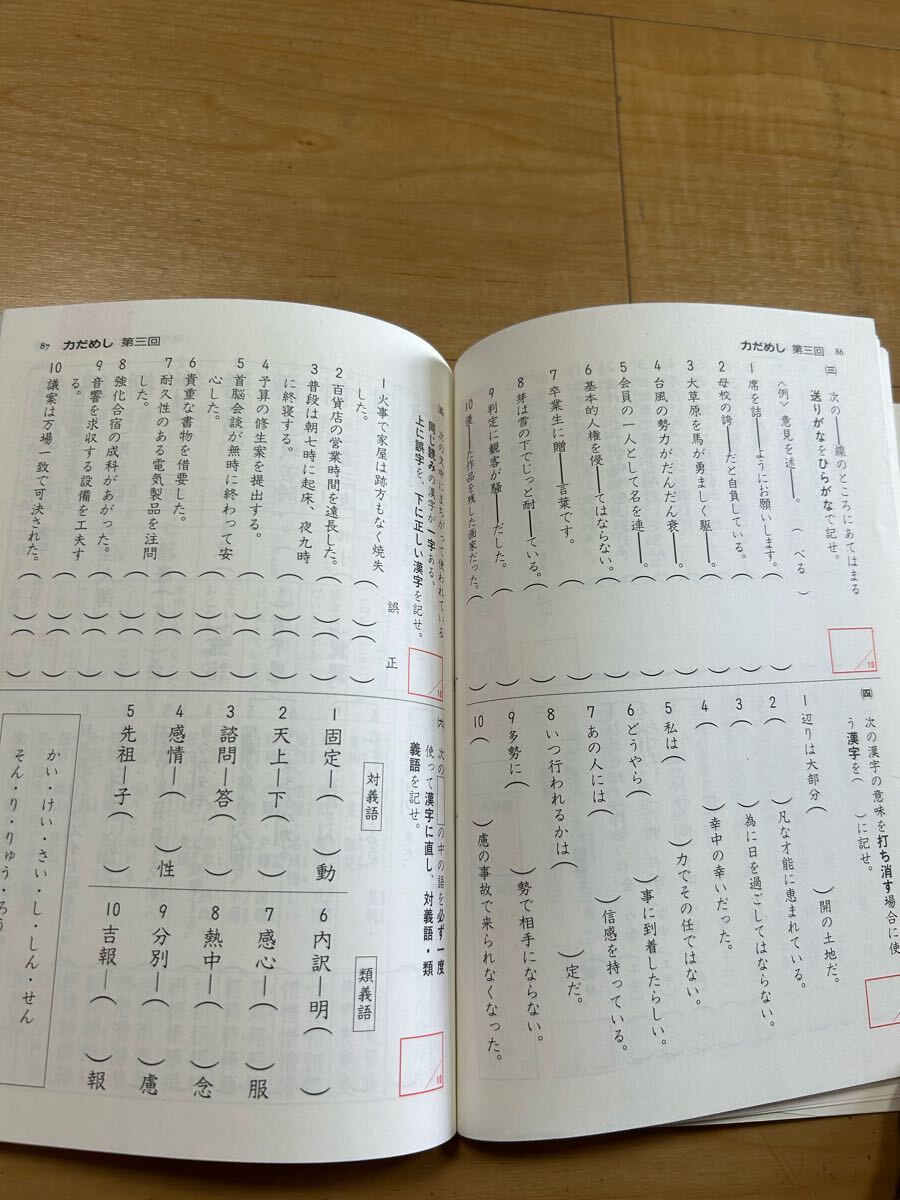 力だめし 第三回 86
(三) 次の――線のところにあてはまる
送りがなをひらがなで記せ。
〈例〉意見を述――。(べる)
1 席を詰――ようにお願いします。( )
2 母校の誇――だと自負している。( )
3 大草原を馬が勇ましく駆――。( )
4 台風の勢力がだんだん衰――。( )
5 会員の一人として名を連――。( )
6 基本的人権を侵――てはならない。( )
7 卒業生に贈――言葉です。( )
8 芽は雪の下でじっと耐――ている。( )
9 判定に観客が騒――だした。( )
10 ――た作品を残した画家だった。( )
10
(四) 次の漢字の意味を打ち消す場合に使
う漢字を( )に記せ。
1 辺りは大部分( )開の土地だ。
2 ( )凡な才能に恵まれている。
3 ( )為に日を過ごしてはならない。
4 ( )幸中の幸いだった。
5 私は( )力でその任ではない。
6 どうやら( )事に到着したらしい。
7 あの人には( )信感を持っている。
8 いつ行われるかは( )定だ。
9 多勢に( )勢で相手にならない。
10 ( )慮の事故で来られなくなった。
87 力だめし 第三回
次の文中にまちがって使われている
同じ読みの漢字が一字ある。
上に誤字を、下に正しい漢字を記せ。
10
誤 正
1 火事で家屋は跡方もなく焼失
した。( )( )
2 百貨店の営業時間を遠長した。( )( )
3 普段は朝七時に起床、夜九時
に終寝する。( )( )
4 予算の修生案を提出する。( )( )
5 首脳会談が無時に終わって安
心した。( )( )
6 貴重な書物を借要した。( )( )
7 耐久性のある電気製品を注問
した。( )( )
8 強化合宿の成科があがった。( )( )
9 音響を求収する設備を工夫す
る。( )( )
10 議案は万場一致で可決された。( )( )
(六) 次の の中の語を必ず一度
使って漢字に直し、対義語・類
義語を記せ。
10
対義語
1 固定―( )動
2 天上―下( )
3 諮問―答( )
4 感情―( )性
5 先祖―子( )
類義語
6 内訳―明( )
7 感心―( )服
8 熱中―( )念
9 分別―( )慮
10 吉報―( )報
かい・けい・さい・し・しん・せん
そん・り・りゅう・ろう